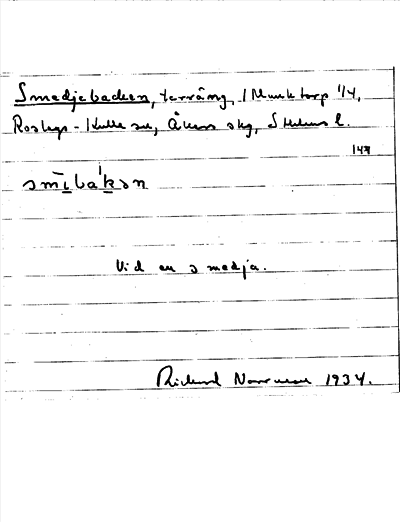 Smedjebacken, terräng, 1 Munktorp 1/4,
Roslags-Kulla sn, Åkers skg, Sthlms l.
147
smībakən
Vid en smedja.
Rickard Norrman 1934.